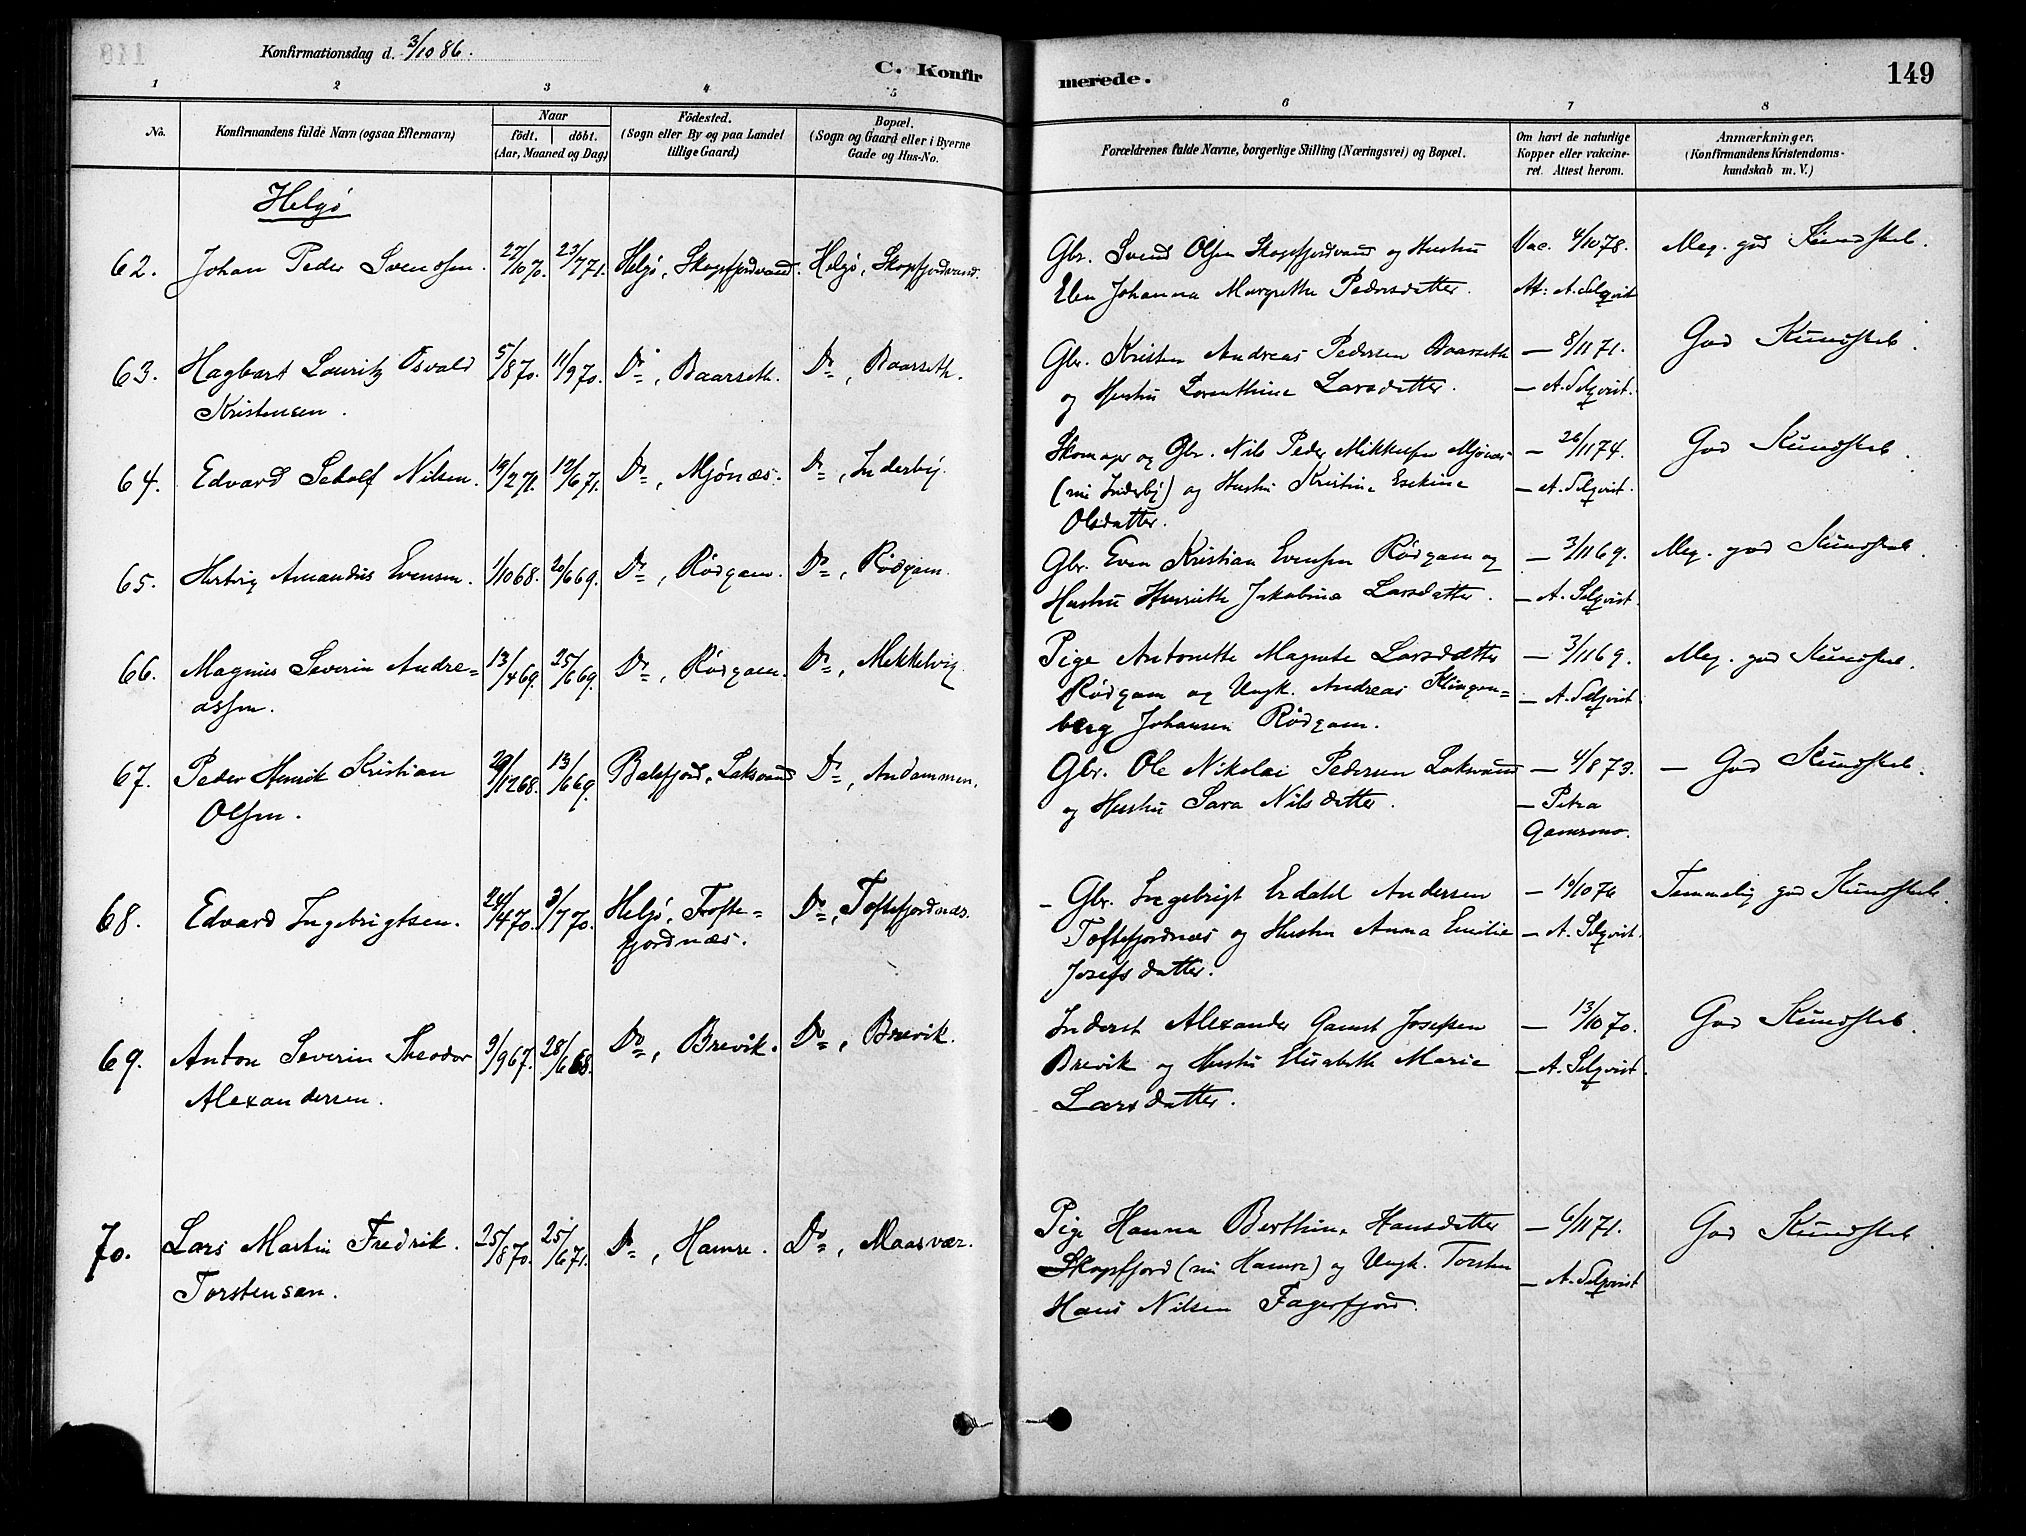 Konfirmationsdag d. 3/10 86.
C. Konfir
merede.
149
1 2 3 4 5 6 7 8
No.
Konfirmandens fulde Navn (ogsaa Efternavn)
Naar
födt. döbt.
(Aar, Maaned og Dag)
Födested.
(Sogn eller By og paa Landet
tillige Gaard)
Bopæl.
(Sogn og Gaard eller i Byerne
Gade og Hus-No.
Forældrenes fulde Navne, borgerlige Stilling (Næringsvei) og Bopæl.
Om havt de naturlige
Kopper eller vakcine-
ret. Attest herom.
Anmærkninger.
(Konfirmandens Kristendoms-
kundskab m. V.)
Helgö
62. Johan Peder Svendsen. 27/10 70. 23/7 71. Helgö, Skogsfjordvand. Helgö, Skogsfjordvand. Gbr. Svend Olsen Skogsfjordvand og Hustru Vac. 4/10 78. Meg. god Kundskab.
Elen Johanna Margrethe Pedersdatter. At: A. Selqvist
63. Hagbart Lauritz Osvald 5/8 70. 11/9 70. Do, Baarseth. Do, Baarseth. Gbr. Kristen Andreas Pedersen Baarseth — 8/11 71. God Kundskab.
Kristensen. og Hustru Lorenthine Larsdatter. — A. Selqvist.
64. Edvard Setolf Nilsen. 19/2 71. 12/6 71. Do, Mjönæs. Do, Inderby. Skomager og Gbr. Nils Peder Mikkelsen Mjönæs — 26/11 74. God Kundskab.
(nu Inderby) og Hustru Kristine Esekine — A. Selqvist.
Olsdatter.
65. Hertvig Amandus Evensen. 1/10 68. 20/6 69. Do, Rödgam. Do, Rödgam. Gbr. Even Kristian Evensen Rödgam og — 3/11 69. Meg. god Kundskab.
Hustru Henriette Jakobina Larsdatter. — A. Selqvist.
66. Magnus Severin Andre= 13/4 69. 25/6 69. Do, Rödgam. Do, Mikkelvig. Pige Antonette Magrete Larsdatter — 3/11 69. Meg. god Kundskab.
assen. Rödgam og Ungk. Andreas Klingen= — A. Selqvist.
berg Johansen Rödgam.
67. Peder Henrik Kristian 29/12 68. 13/6 69. Balsfjord, Laksvand Do, Andammen. Gbr. Ole Nikolai Pedersen Laksvand — 4/8 73. — God Kundskab.
Olsen. og Hustru Sara Nilsdatter. — Petra
68. Edvard Ingebrigtsen. 24/4 70. 3/7 70. Helgö, Tofte= Do, Toftefjordnæs. — Gbr. Ingebrigt Erdahl Andersen Temmelig god Kundskab.
fjordnæs. Toftefjordnæs og Hustru Anna Emilie — A. Selqvist.
Josefsdatter.
69. Anton Severin Theodor 9/9 67. 28/6 68. Do, Brevik. Do, Brevik. Inderst Alexander Gamst Josefsen — 13/10 70. God Kundskab.
Alexandersen. Brevik og Hustru Elisabeth Marie — A. Selqvist.
Larsdatter.
70. Lars Martin Fredrik 25/8 70. 25/6 71. Do, Hamre. Do, Maasvær. Pige Hanna Berthine Hansdatter — 6/11 71. God Kundskab.
Torstensen. Skogsfjord (nu Hamre) og Ungk. Torsten — A. Selqvist
Hans Nilsen Fagerfjord.